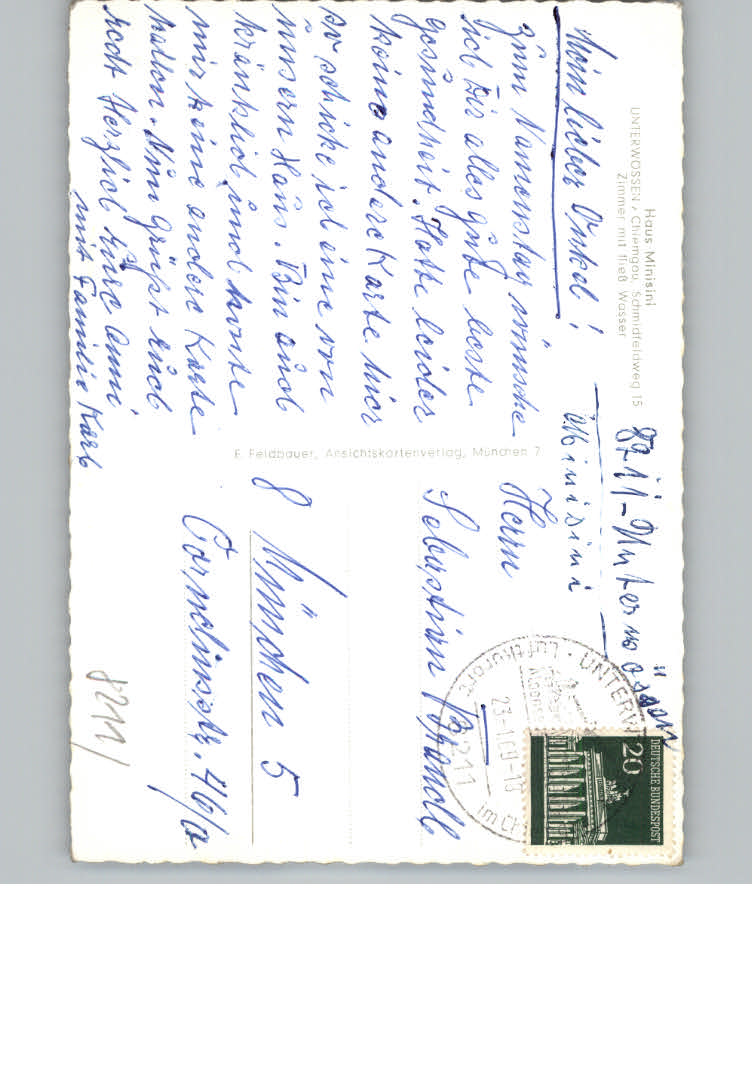 Haus Minisini
UNTERWÖSSEN / Chiemgau, Schmidfeldweg 15
Zimmer mit fließ Wasser
Mein lieber Onkel!
Zum Namenstag wünsche
ich Dir alles Gute beste
Gesundheit. Hatte leider
keine andere Karte hier
so schicke ich eine von
unsern Haus. Bin auch
kränklich und konte
mir keine andere Karte
hollen. Nun grüßt Euch
recht Herzlich Eure Anni
mit Familie Karl
E. Feldbauer, Ansichtskartenverlag, München 7
8211-Unterwössen
Minisini
DEUTSCHE BUNDESPOST
20
UNTERW
Luftkurort
8211
im Ch
23-1
Herrn
Sebastian
8 München 5
Corneliusstr. 46/0
8211/